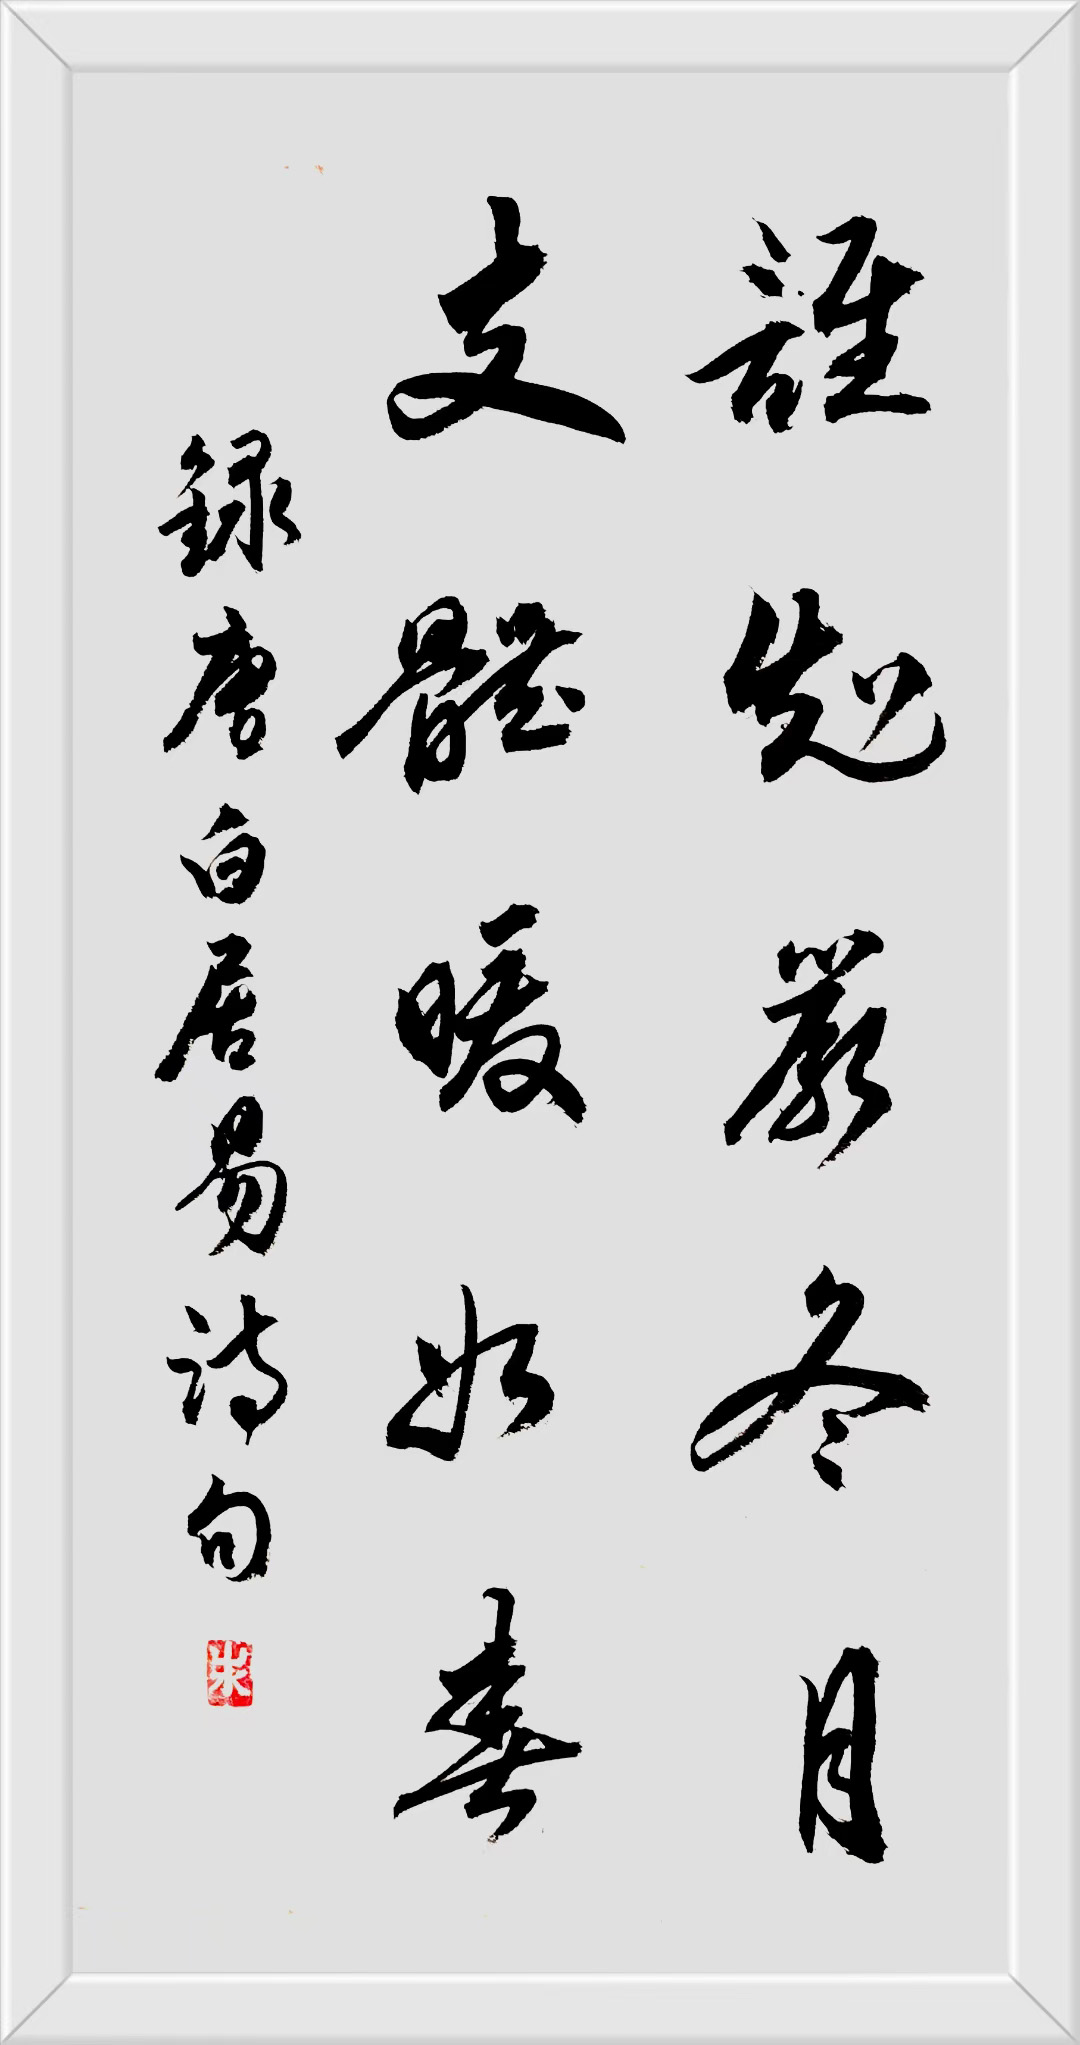 誰知嚴冬月
支體暖如春
録唐白居易詩句
朱